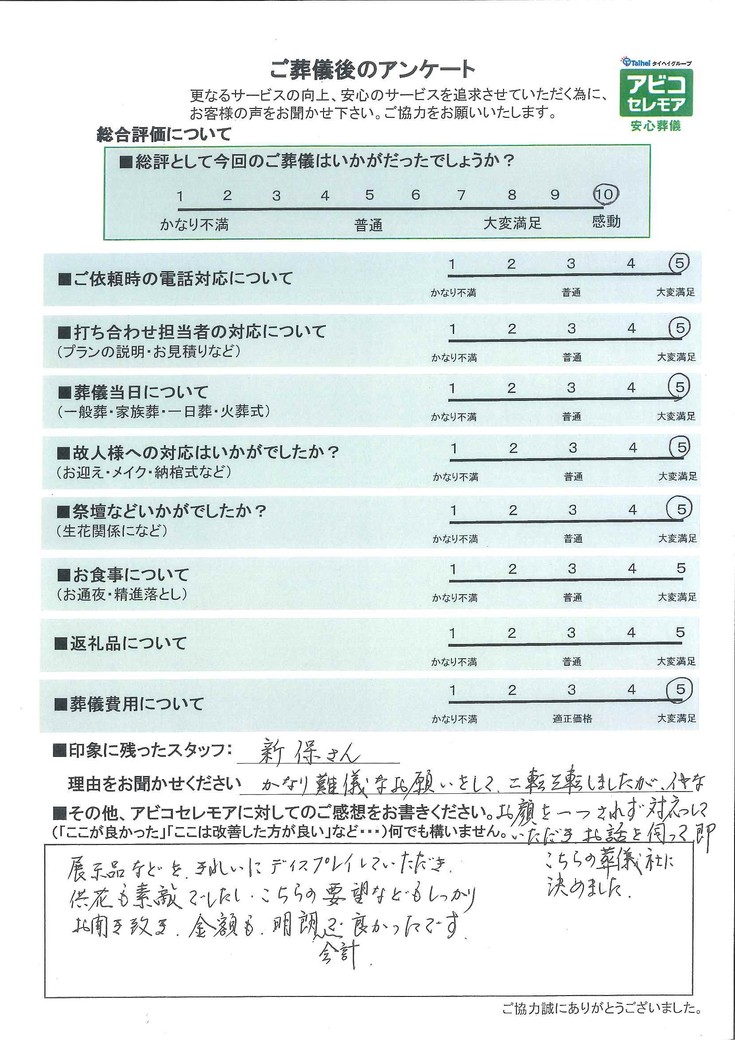 ご葬儀後のアンケート
Taihei タイヘイグループ
アビコ
セレモア
安心葬儀
更なるサービスの向上、安心のサービスを追求させていただく為に、
お客様の声をお聞かせ下さい。ご協力をお願いいたします。
総合評価について
■総評として今回のご葬儀はいかがだったでしょうか？
1 2 3 4 5 6 7 8 9 10
かなり不満 普通 大変満足 感動
■ご依頼時の電話対応について
1 2 3 4 5
かなり不満 普通 大変満足
■打ち合わせ担当者の対応について
(プランの説明・お見積りなど)
1 2 3 4 5
かなり不満 普通 大変満足
■葬儀当日について
(一般葬・家族葬・一日葬・火葬式)
1 2 3 4 5
かなり不満 普通 大変満足
■故人様への対応はいかがでしたか？
(お迎え・メイク・納棺式など)
1 2 3 4 5
かなり不満 普通 大変満足
■祭壇などいかがでしたか？
(生花関係になど)
1 2 3 4 5
かなり不満 普通 大変満足
■お食事について
(お通夜・精進落とし)
1 2 3 4 5
かなり不満 普通 大変満足
■返礼品について
1 2 3 4 5
かなり不満 普通 大変満足
■葬儀費用について
1 2 3 4 5
かなり不満 適正価格 大変満足
■印象に残ったスタッフ： 新保さん
理由をお聞かせください かなり難儀なお願いをして、二転三転しましたが、イヤな
お顔を一つされず対応して
いただき お話を伺って、即
こちらの葬儀社に
決めました.
■その他、アビコセレモアに対してのご感想をお書きください。
(「ここが良かった」「ここは改善した方が良い」など・・・)何でも構いません。
展示品などを、きれいにディスプレイしていただき、
供花も素敵でしたし、こちらの要望などもしっかり
お聞き致き、金額も、明朗会計で良かったです.
ご協力誠にありがとうございました。